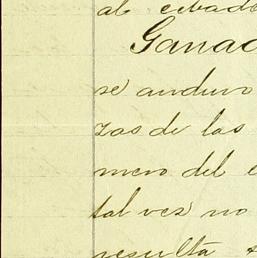 al cebad
Ganad
se anduvo
zas de las
mero del e
tal vez no
resulta